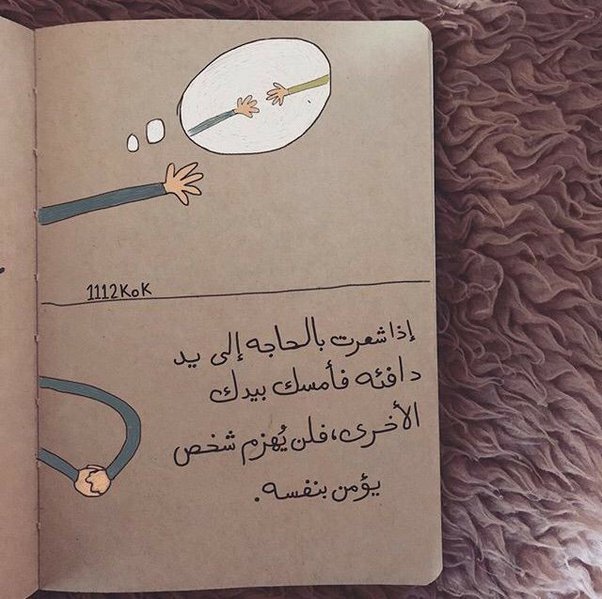 1112KoK
إذا شعرت بالحاجه إلى يد
دافئه فأمسك بيدك
الأخرى، فلن يُهزم شخص
يؤمن بنفسه.